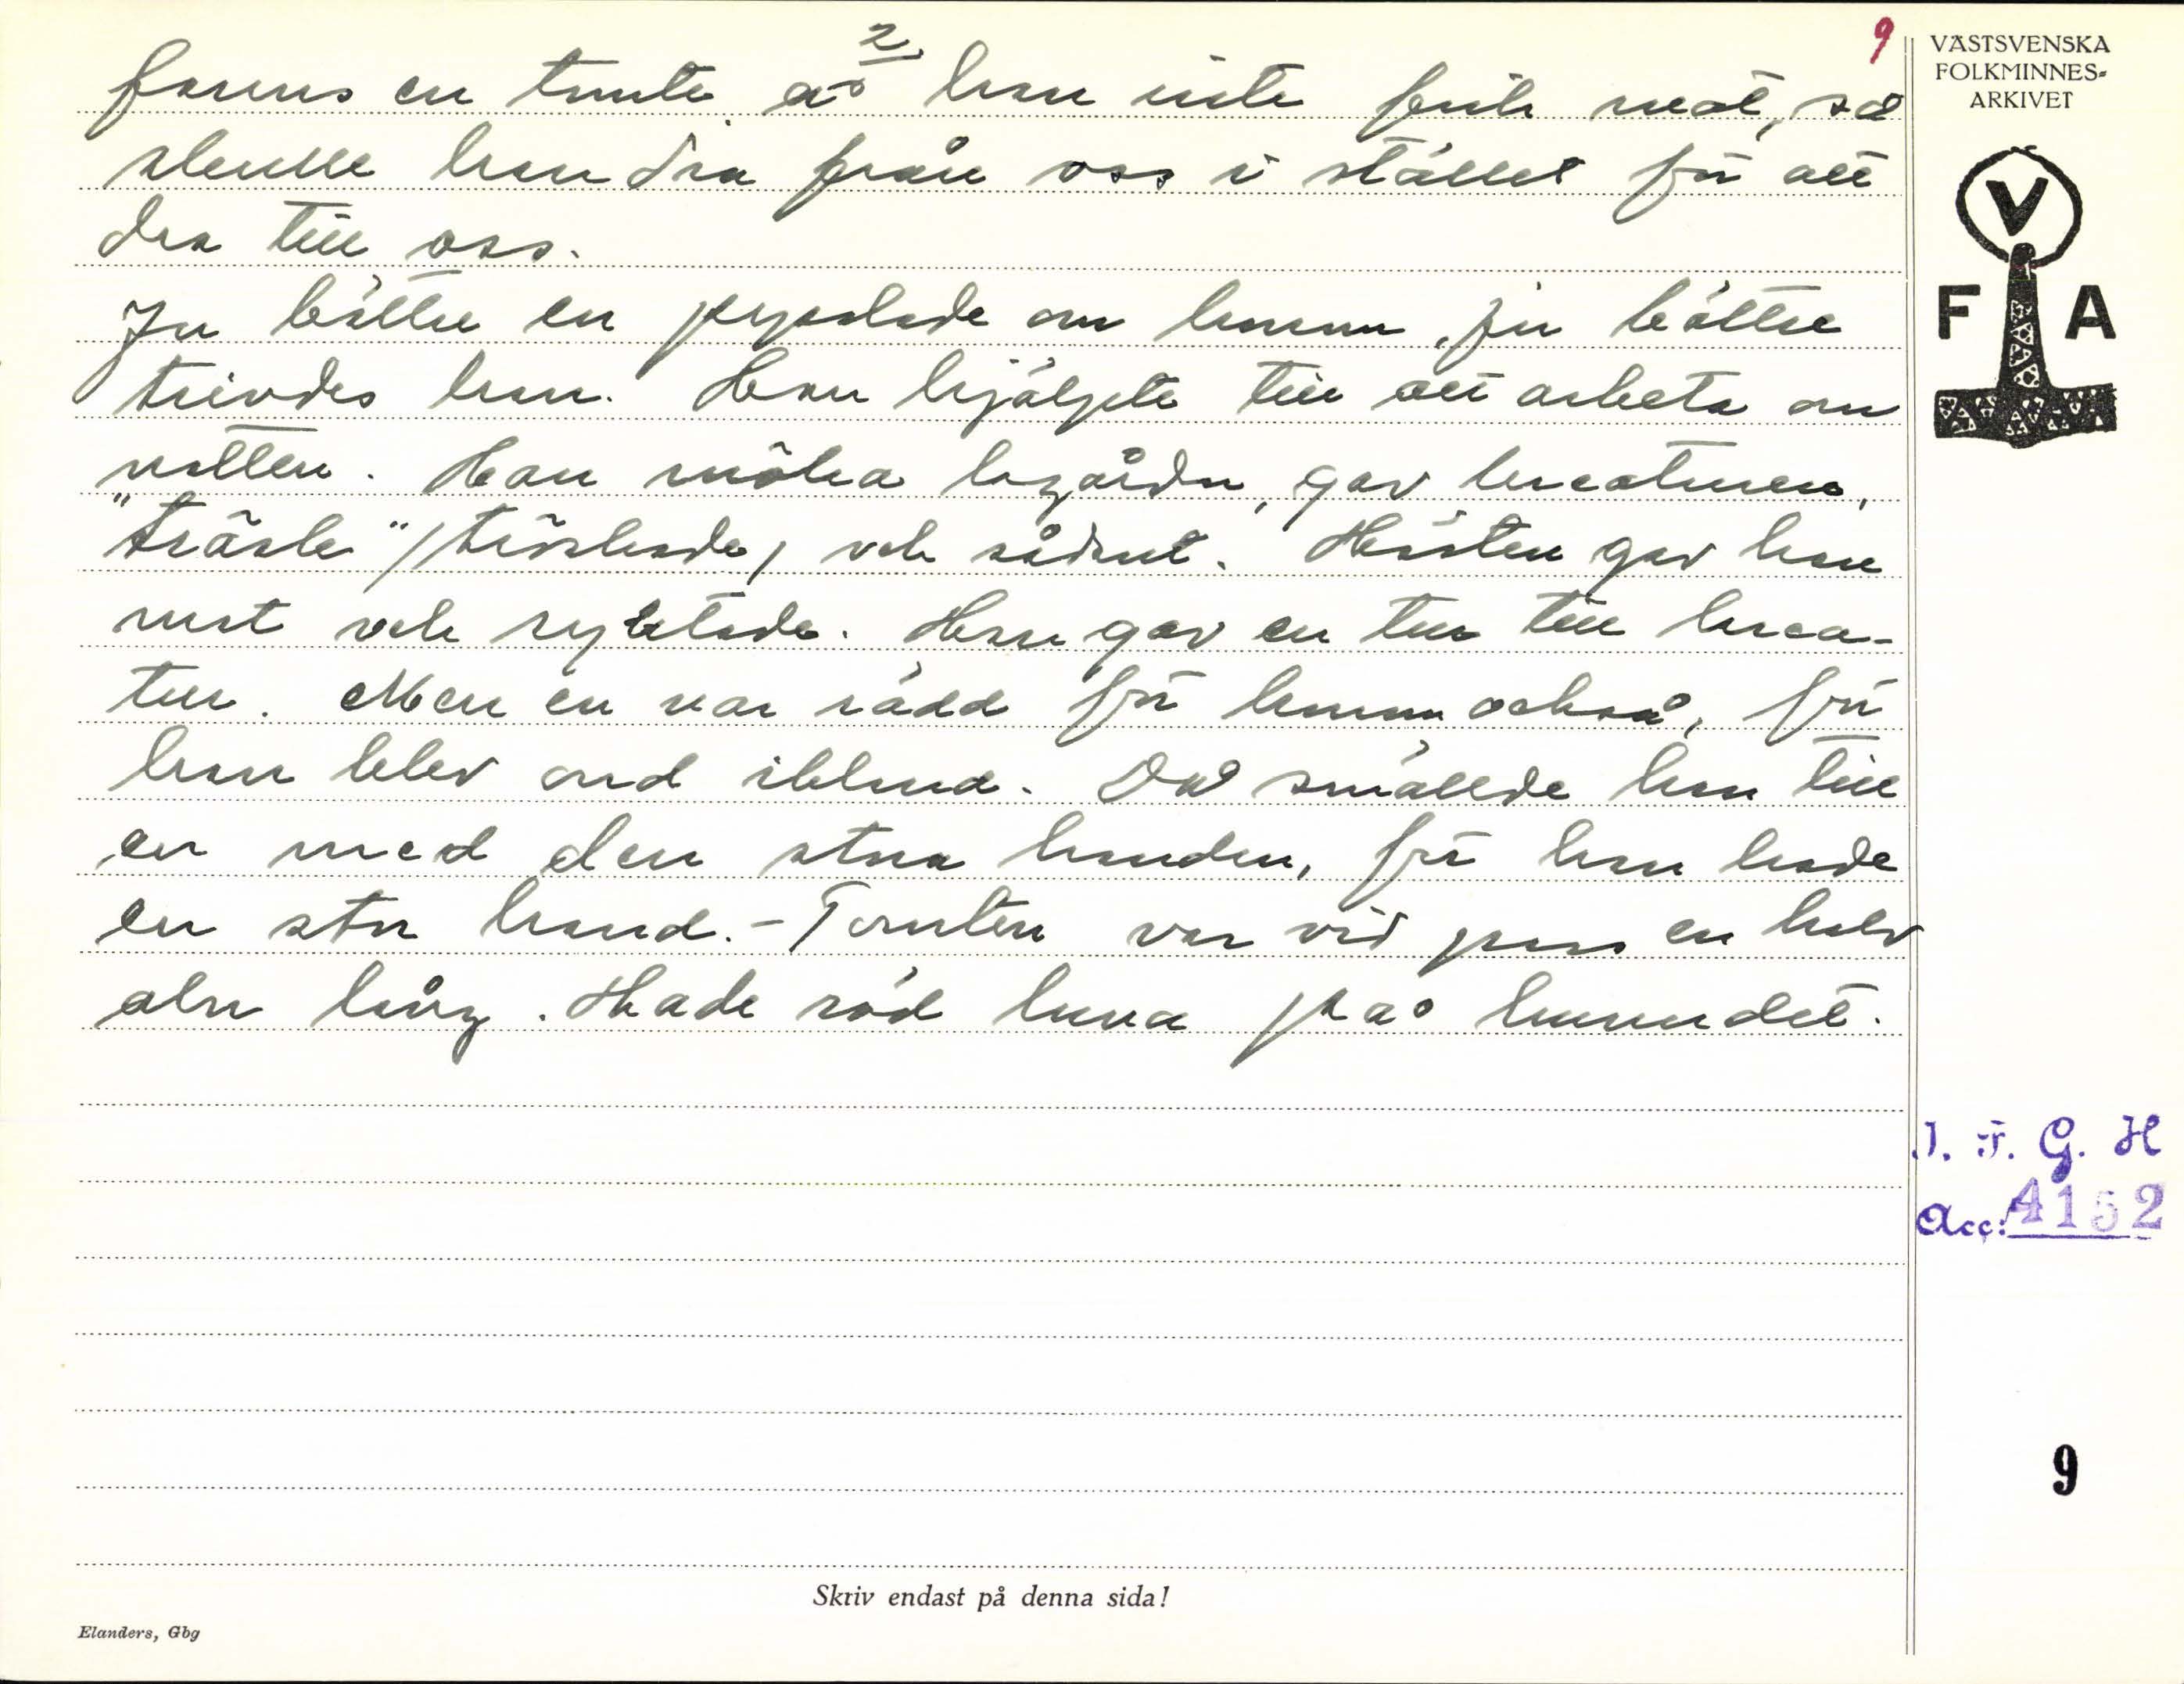 2
9
fanns en tomte å han inte fick mat, så
skulle han dra från oss i stället för att
dra till oss.
Ju bättre en pysslade om honom, ju bättre
trivdes han. Han hjälpte till att arbeta om
natten. Han mocka lagårdn, gav kreaturen,
"träske" /tröskade/ och sådant. Hästen gav han
mat och ryktade. Han gav en tur till krea-
tur. Men en var rädd för honom också, för
han blev ond ibland. Då smällde han till
en med den stora handen, för han hade
en stor hand. - Tomten var vid pass en halv
aln lång. Hade röd luva på huvudet.
VÄSTSVENSKA
FOLKMINNES-
ARKIVET
V
F A
I. F. G. H
Acc: 4152
9
Skriv endast på denna sida!
Elanders, Gbg